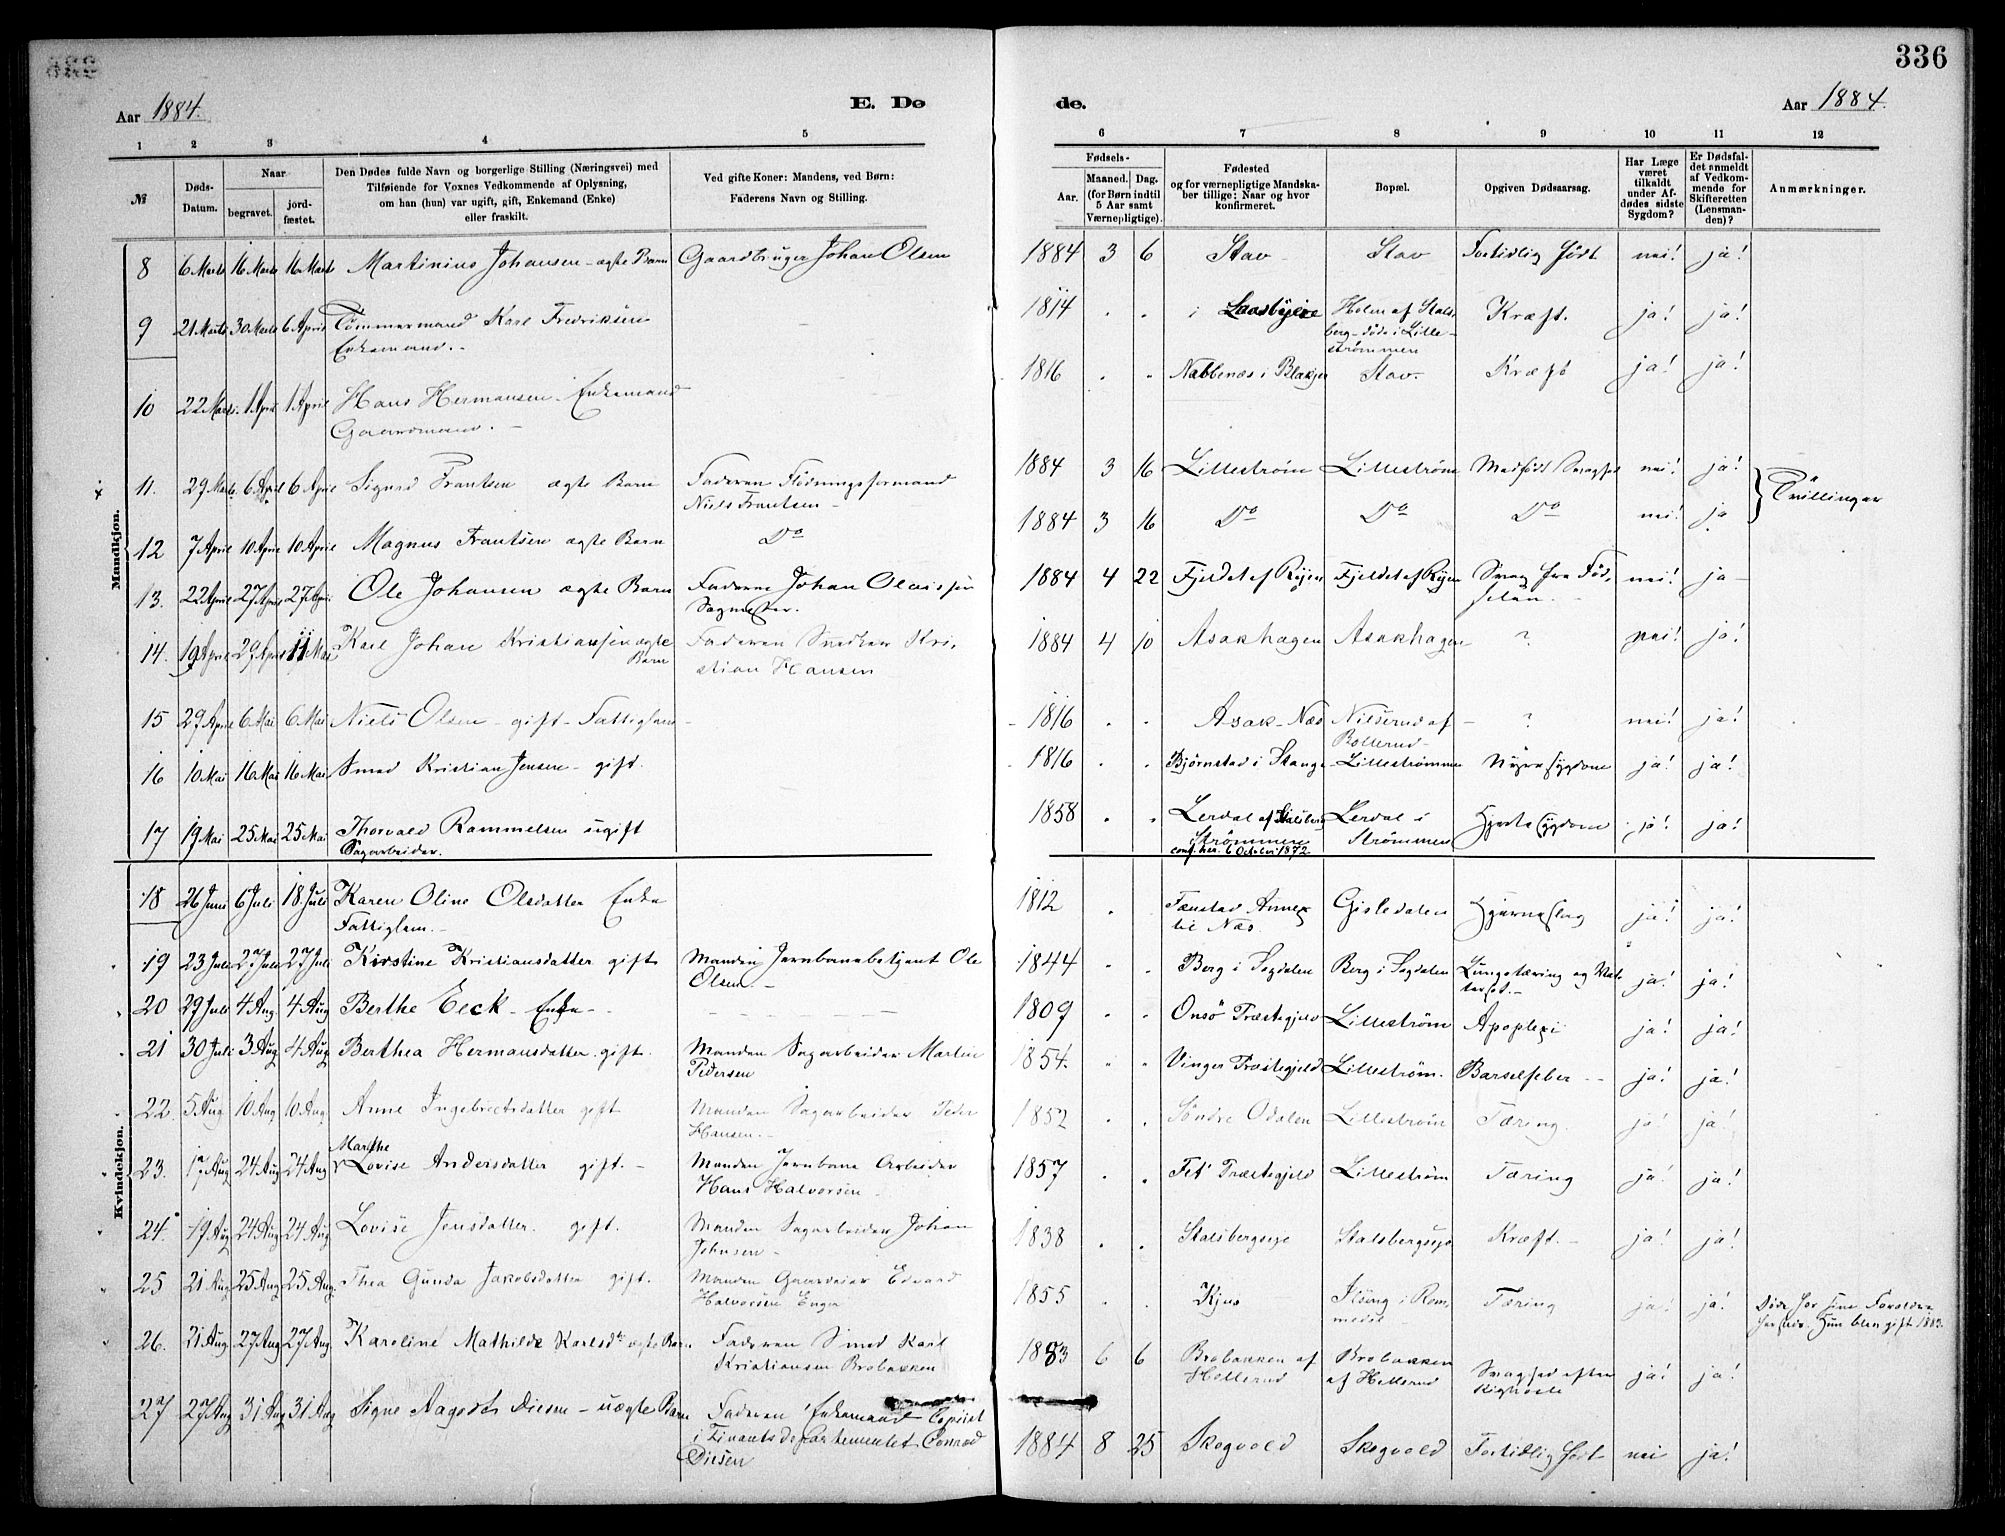 336
Aar 1884.
E. Døde.
Aar 1884.
1 2 3 4 5 6 7 8 9 10 11 12
№
Døds-Datum.
Naar
begravet.
jord-fæstet.
Den Dødes fulde Navn og borgerlige Stilling (Næringsvei) med
Tilføiende for Voxnes Vedkommende af Oplysning,
om han (hun) var ugift, gift, Enkemand (Enke)
eller fraskilt.
Ved gifte Koner: Mandens, ved Børn:
Faderens Navn og Stilling.
Fødsels-
Aar.
Maaned. Dag.
(for Børn indtil
5 Aar samt
Værnepligtige).
Fødested
og for værnepligtige Mandska-
ber tillige: Naar og hvor
konfirmeret.
Bopæl.
Opgiven Dødsaarsag.
Har Læge
været
tilkaldt
under Af-
dødes sidste
Sygdom?
Er Dødsfal-
det anmeldt
af Vedkom-
mende for
Skifteretten
(Lensman-
den)?
Anmærkninger.
Mandkjøn.
8 6 Marts 16 Marts 16 Marts Martinius Johansen - ægte Barn Gaardbruger Johan Olsen 1884 3 6 Stav Stav Fortidlig født nei! ja!
9 21 Marts 30 Marts 6 April Tømmermand Karl Fredriksen 1814 " " i Holm af Stals-
Enkemand. berg - døde i Lille-
strømmen Kræft. ja! ja!
10 22 Marts 1 April 1 April Hans Hermansen Enkemand 1816 " " Nabbenæs i Blakjer Stav. Kræft ja! ja!
Gaardmand.
11. 29 Marts 6 April 6 April Sigurd Frantsen ægte Barn Faderen Flødningsformand 1884 3 16 Lillestrøm Lillestrøm Medfødt Svaghed nei! ja!
Niels Frantsen Tvillinger
12 7 April 10 April 10 April Magnus Frantsen ægte Barn Do 1884 3 16 Do Do Do nei! ja
13. 22 April 27 April 27 April Ole Johansen ægte Barn Faderen Johan Olaissen 1884 4 22 Fjeldet af Ryen Fjeldet af Ryen Svag fra Fød- nei! ja
Sagmester. selen.
14. 19 April 29 April 11 Mai Karl Johan Kristiansen ægte Faderen Snedker Kri- 1884 4 10 Asakhagen Asakhagen ? nei! ja!
Barn stian Hansen
15 29 April 6 Mai 6 Mai Niels Olsen - gift - Fattiglem 1816 " " Asak-Næs Nilserud af ? nei! ja!
Bollerud
16 10 Mai 16 Mai 16 Mai Smed Kristian Jensen - gift. 1816 " " Bjørnstad i Stange Lillestrømmen Nyresygdom ja! ja!
17 19 Mai 25 Mai 25 Mai Thorvald Rammelsen ugift 1858 " " Lerdal af Stalsberg Lerdal i Hjertesygdom ja! ja!
Sagarbeider. i Strømmen Strømmen
conf. her. 6 October 1872
Kvindekjøn.
18 26 Juni 6 Juli 18 Juli Karen Oline Olsdatter Enke 1812 " Fænstad Annex Gisledalen Hjerneslag ja! ja!
Fattiglem. til Næs.
19 23 Juli 27 Juli 27 Juli Kirstine Kristiansdatter gift Manden Jernbanebetjent Ole 1844 " " Berg i Sogdalen Berg i Sogdalen Lungetæring og Vat- ja! ja!
Olsen tersot.
20 29 Juli 4 Aug. 4 Aug Berthe Eeck - Enke 1809 " " Onsö Præstegjeld Lillestrøm Apoplexi ja! ja!
21 30 Juli 3 Aug 4 Aug Berthea Hermansdatter gift. Manden Sagarbeider Martin 1854. " " Vinger Præstegjeld Lillestrøm. Barselfeber ja! ja!
Pedersen
22. 5 Aug 10 Aug 10 Aug Anne Ingebretsdatter gift Manden Sagarbeider Peder 1852 " " Söndre Odalen Lillestrøm Tæring. ja! ja!
Hansen.
23. 17 Aug 24 Aug 24 Aug Marthe
Lovise Andersdatter gift. Manden Jernbane Arbeider 1857 " " Fet Præstegjeld Lillestrøm Tæring ja! ja!
Hans Halvorsen
24. 19 Aug 24 Aug 24 Aug Lovise Jensdatter. gift. Manden Sagarbeider Johan 1838 " " Stalsbergseje Stalsbergseje Kræft. ja! ja!
Johnsen
25 21 Aug 25 Aug 25 Aug. Thea Gunda Jakobsdatter gift. Manden Gaardeier Edvard 1855 " " Kjus Ilseng i Rom- Tæring ja! ja! Døde hos sine Forældre
Halvorsen Enger medal hersteds. Hun blev gift 1883.
26. 21 Aug 27 Aug 27 Aug. Karoline Mathilde Karlsdtr ægte Barn Faderen Smed Karl 1883 6 6 Brobakken af Brobakken Svaghed efter ja! ja!
Kristiansen Brobakken Hellerud af Hellerud Kighoste
27 27 Aug 31 Aug 31 Aug Signe Augusta Diesen - uægte Barn Faderen Enkemand Copiist 1884 8 25 Skogvold Skogvold Fortidlig født nei ja!
i Finantsdepartementet Conrad
Diesen